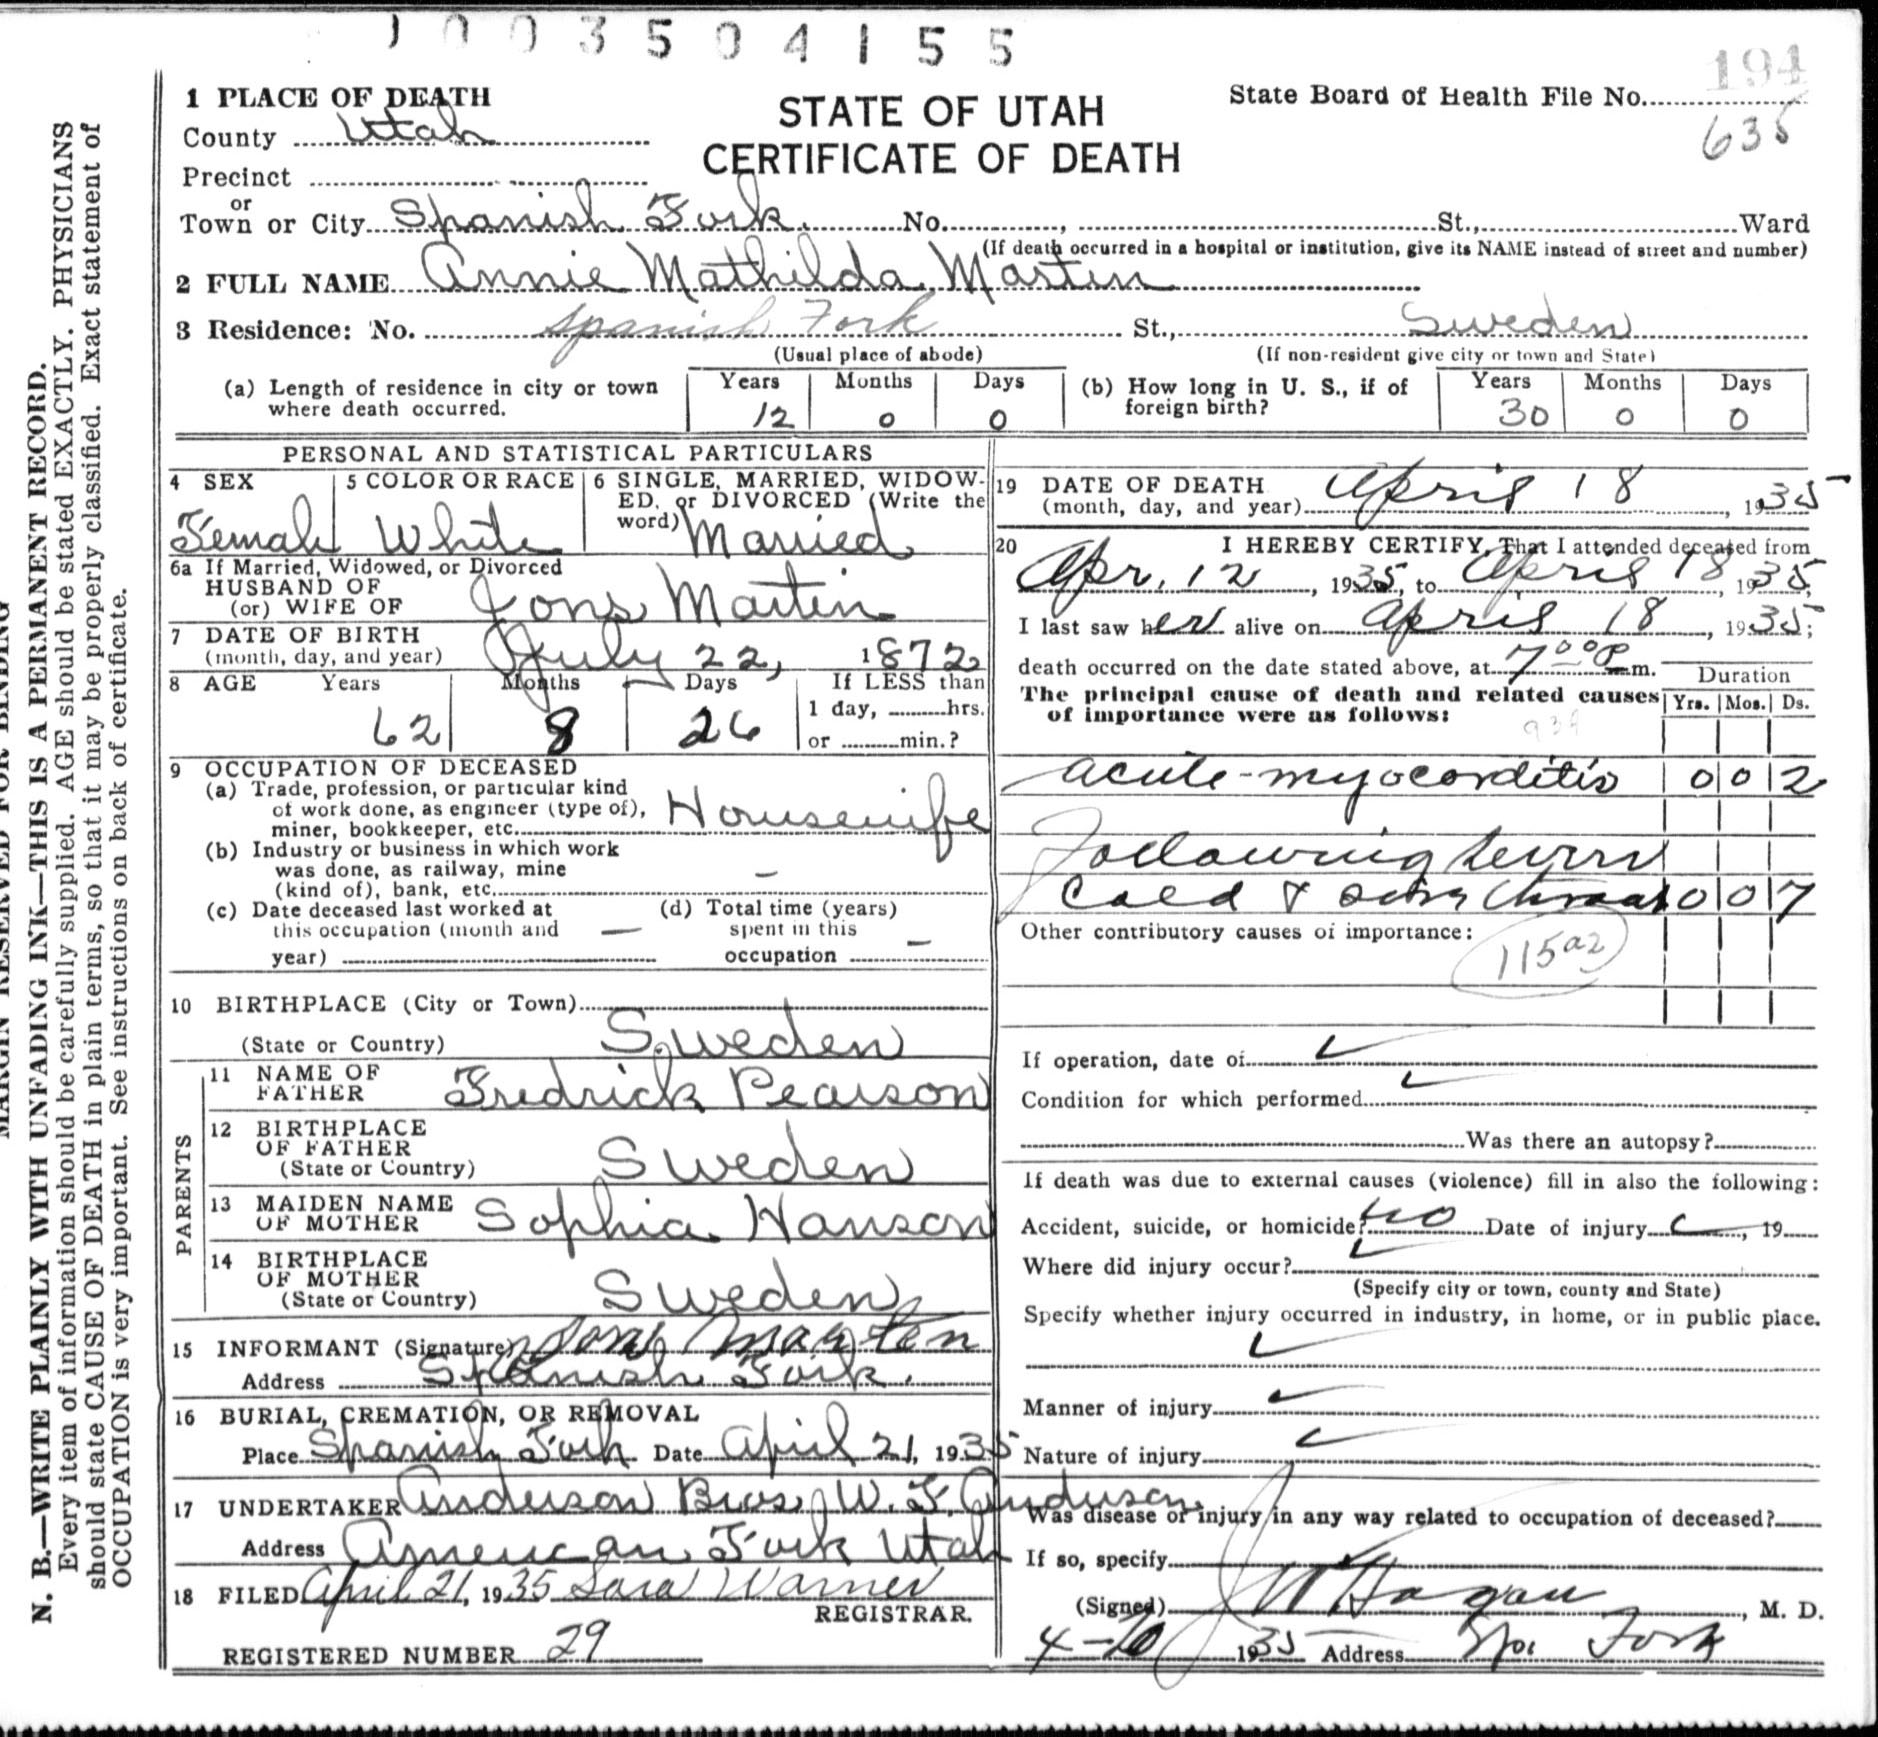 1003504155
194
1 PLACE OF DEATH
STATE OF UTAH
CERTIFICATE OF DEATH
State Board of Health File No.
635
County Utah
Precinct
or
Town or City Spanish Fork. No. , St., Ward
(If death occurred in a hospital or institution, give its NAME instead of street and number)
2 FULL NAME Annie Mathilda Martin
3 Residence: No. Spanish Fork St., Sweden
(Usual place of abode) (If non-resident give city or town and State)
(a) Length of residence in city or town where death occurred. Years 12 Months 0 Days 0
(b) How long in U. S., if of foreign birth? Years 30 Months 0 Days 0
PERSONAL AND STATISTICAL PARTICULARS
4 SEX Female
5 COLOR OR RACE White
6 SINGLE, MARRIED, WIDOW-
ED, or DIVORCED (Write the
word) Married
6a If Married, Widowed, or Divorced
HUSBAND OF
(or) WIFE OF Jons Martin
7 DATE OF BIRTH
(month, day, and year) July 22, 1872
8 AGE Years 62 Months 8 Days 26
If LESS than
1 day, hrs.
or min.?
9 OCCUPATION OF DECEASED
(a) Trade, profession, or particular kind
of work done, as engineer (type of),
miner, bookkeeper, etc. Housewife
(b) Industry or business in which work
was done, as railway, mine
(kind of), bank, etc. —
(c) Date deceased last worked at
this occupation (month and
year) —
(d) Total time (years)
spent in this
occupation —
10 BIRTHPLACE (City or Town)
(State or Country) Sweden
PARENTS
11 NAME OF
FATHER Fredrick Pearson
12 BIRTHPLACE
OF FATHER
(State or Country) Sweden
13 MAIDEN NAME
OF MOTHER Sophia Hanson
14 BIRTHPLACE
OF MOTHER
(State or Country) Sweden
15 INFORMANT (Signature) Jons Marten
Address Spanish Fork.
16 BURIAL, CREMATION, OR REMOVAL
Place Spanish Fork Date April 21, 1935
17 UNDERTAKER Anderson Bros. W. F. Anderson
Address American Fork Utah
18 FILED April 21, 1935 Sara Warner
REGISTRAR.
REGISTERED NUMBER 29
19 DATE OF DEATH
(month, day, and year) April 18, 1935
20 I HEREBY CERTIFY, That I attended deceased from
Apr. 12, 1935, to April 18, 1935,
I last saw her alive on April 18, 1935;
death occurred on the date stated above, at 7 00 P m.
The principal cause of death and related causes
of importance were as follows:
Duration
Yrs. Mos. Ds.
acute-myocarditis 0 0 2
Following
Cold & 0 0 7
Other contributory causes of importance:
115a2
If operation, date of
Condition for which performed
Was there an autopsy?
If death was due to external causes (violence) fill in also the following:
Accident, suicide, or homicide? no Date of injury , 19
Where did injury occur?
(Specify city or town, county and State)
Specify whether injury occurred in industry, in home, or in public place.
Manner of injury
Nature of injury
Was disease or injury in any way related to occupation of deceased?
If so, specify
(Signed) J W Hagan, M. D.
4-20 1935 Address Spa Fork
MARGIN RESERVED FOR BINDING
N. B.—WRITE PLAINLY WITH UNFADING INK—THIS IS A PERMANENT RECORD.
Every item of information should be carefully supplied. AGE should be stated EXACTLY. PHYSICIANS
should state CAUSE OF DEATH in plain terms, so that it may be properly classified. Exact statement of
OCCUPATION is very important. See instructions on back of certificate.